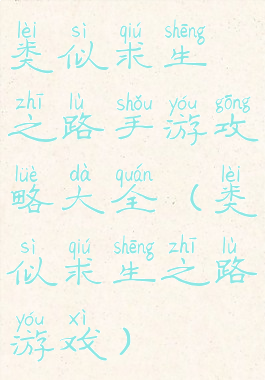 lèi sì qiú shēng
类似求生
zhī lù shǒu yóu gōng
之路手游攻
lüè dà quán lèi
略大全（类
sì qiú shēng zhī lù
似求生之路
yóu xì
游戏）